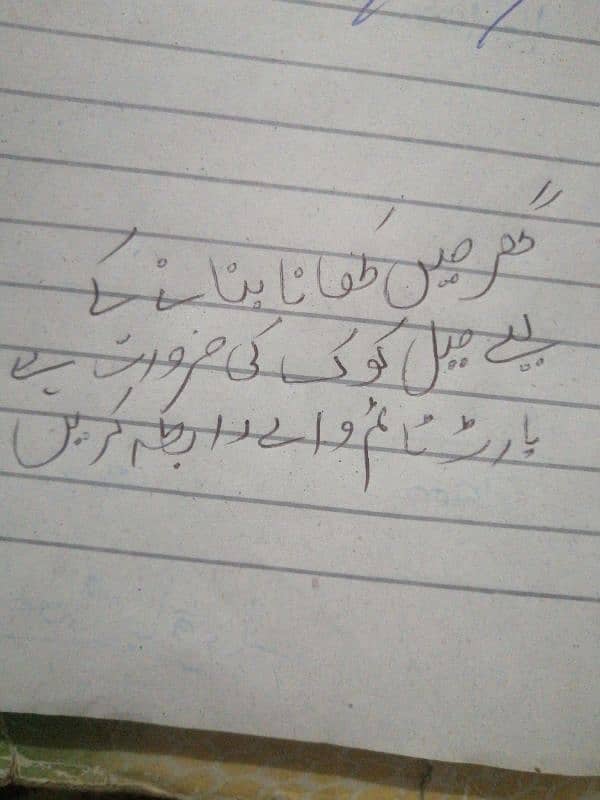 گھر میں کھانا بنانے کے
لیے میل کوک کی ضرورت ہے
پارٹ ٹائم والے رابطہ کریں